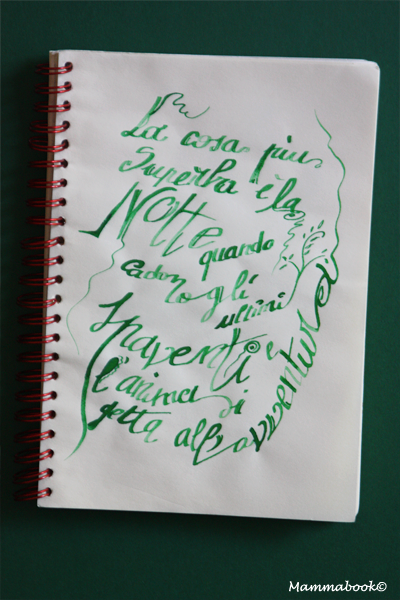 La cosa più
Superba è la
Notte
quando
cadono gli
ultimi
Spaventi e
l'anima si
getta all'avventura
Mammabook©